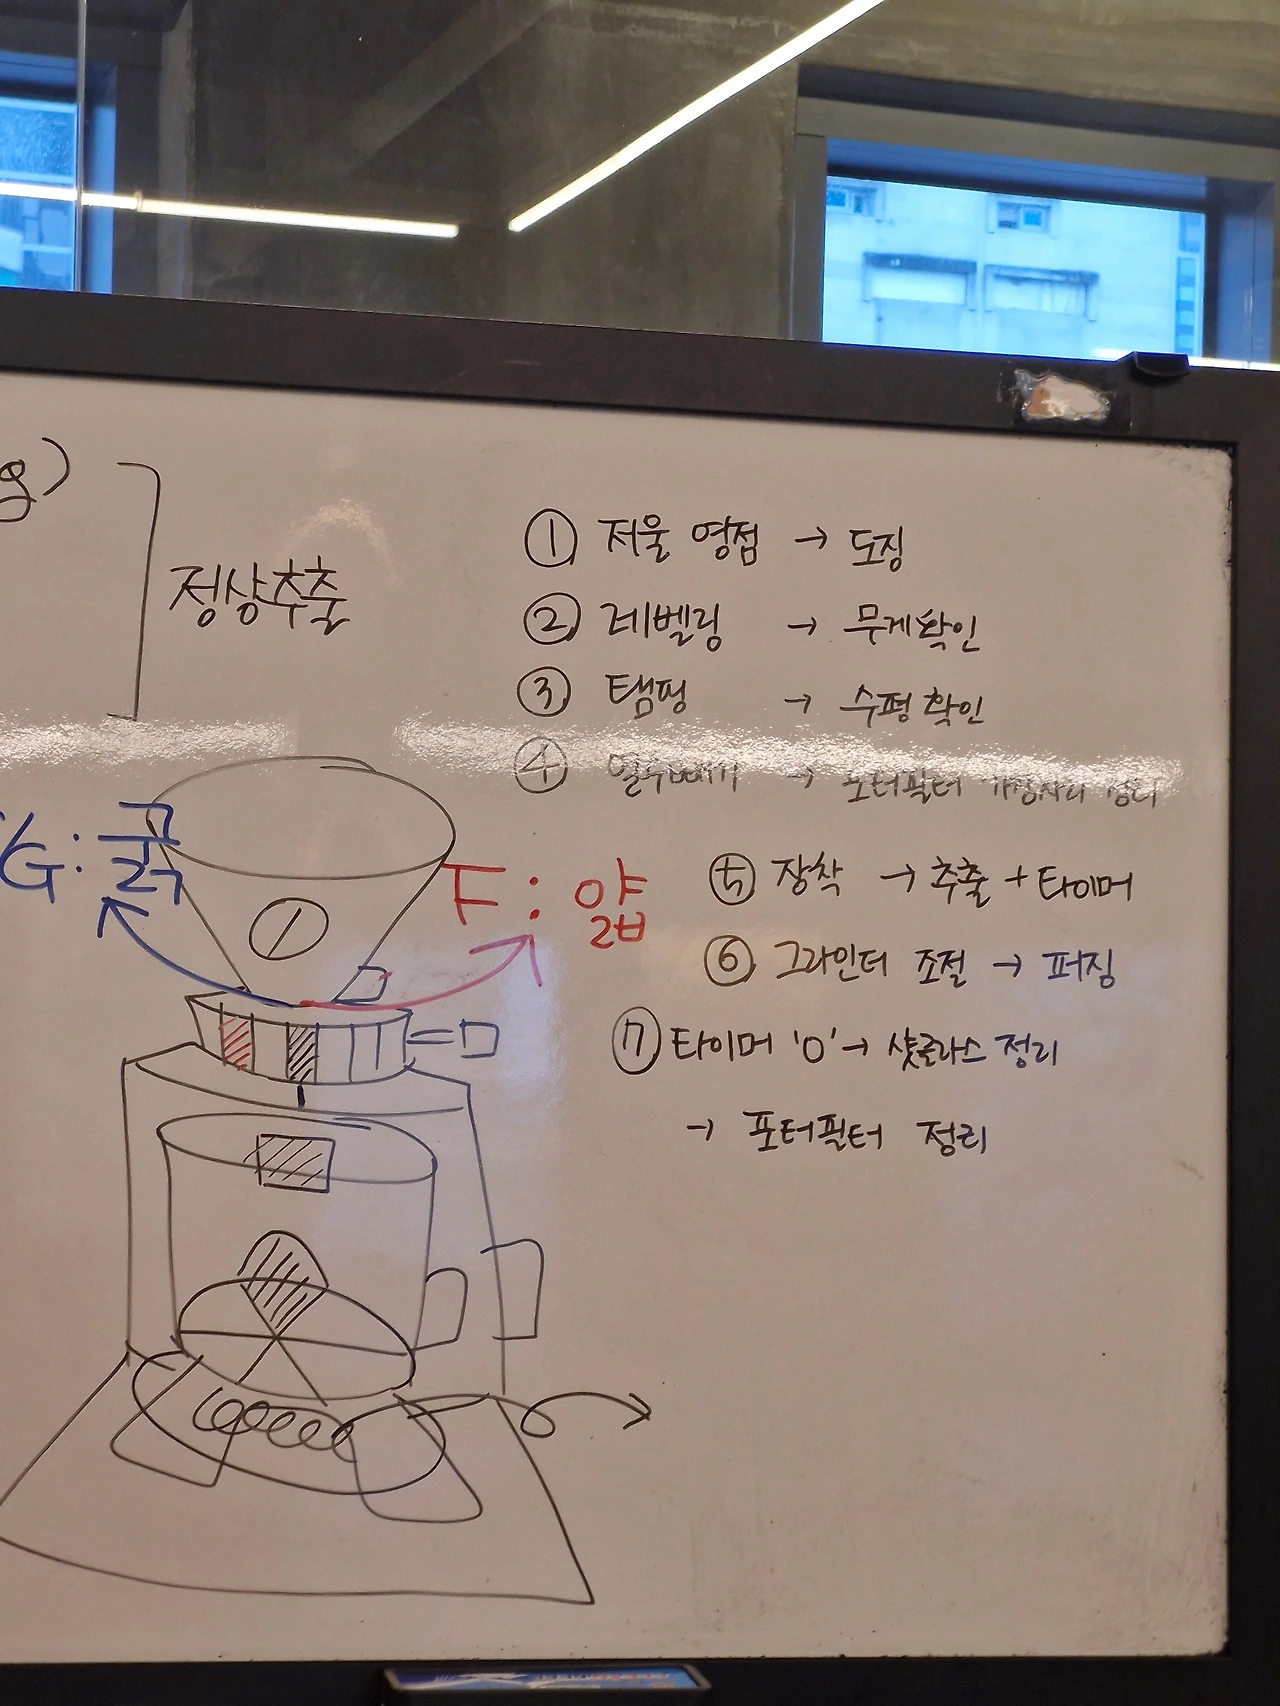 g)
정상추출
① 저울 영점 → 도징
② 레벨링 → 무게확인
③ 탬핑 → 수평 확인
④ 열수빼기 → 포터필터 가장자리 정리
G: 굵
F: 얇
⑤ 장착 → 추출 + 타이머
⑥ 그라인더 조절 → 퍼징
⑦ 타이머 '0' → 샷글라스 정리
→ 포터필터 정리